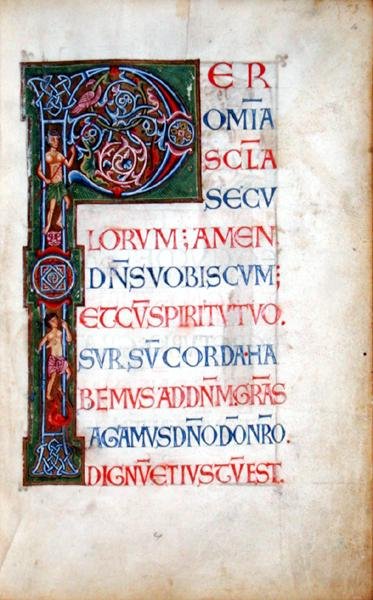 PER
OMĪA
SCL̄A
SECV
LORVM; AMEN
DN̄S VOBISCVM;
ET CV̄ SPIRITV TVO.
SVRSV̄ CORDA· HA
BEMVS AD DN̄M. GR̄AS
AGAMVS DN̄O DŌ NR̄O.
DIGNV̄ ET IVSTV̄ EST.